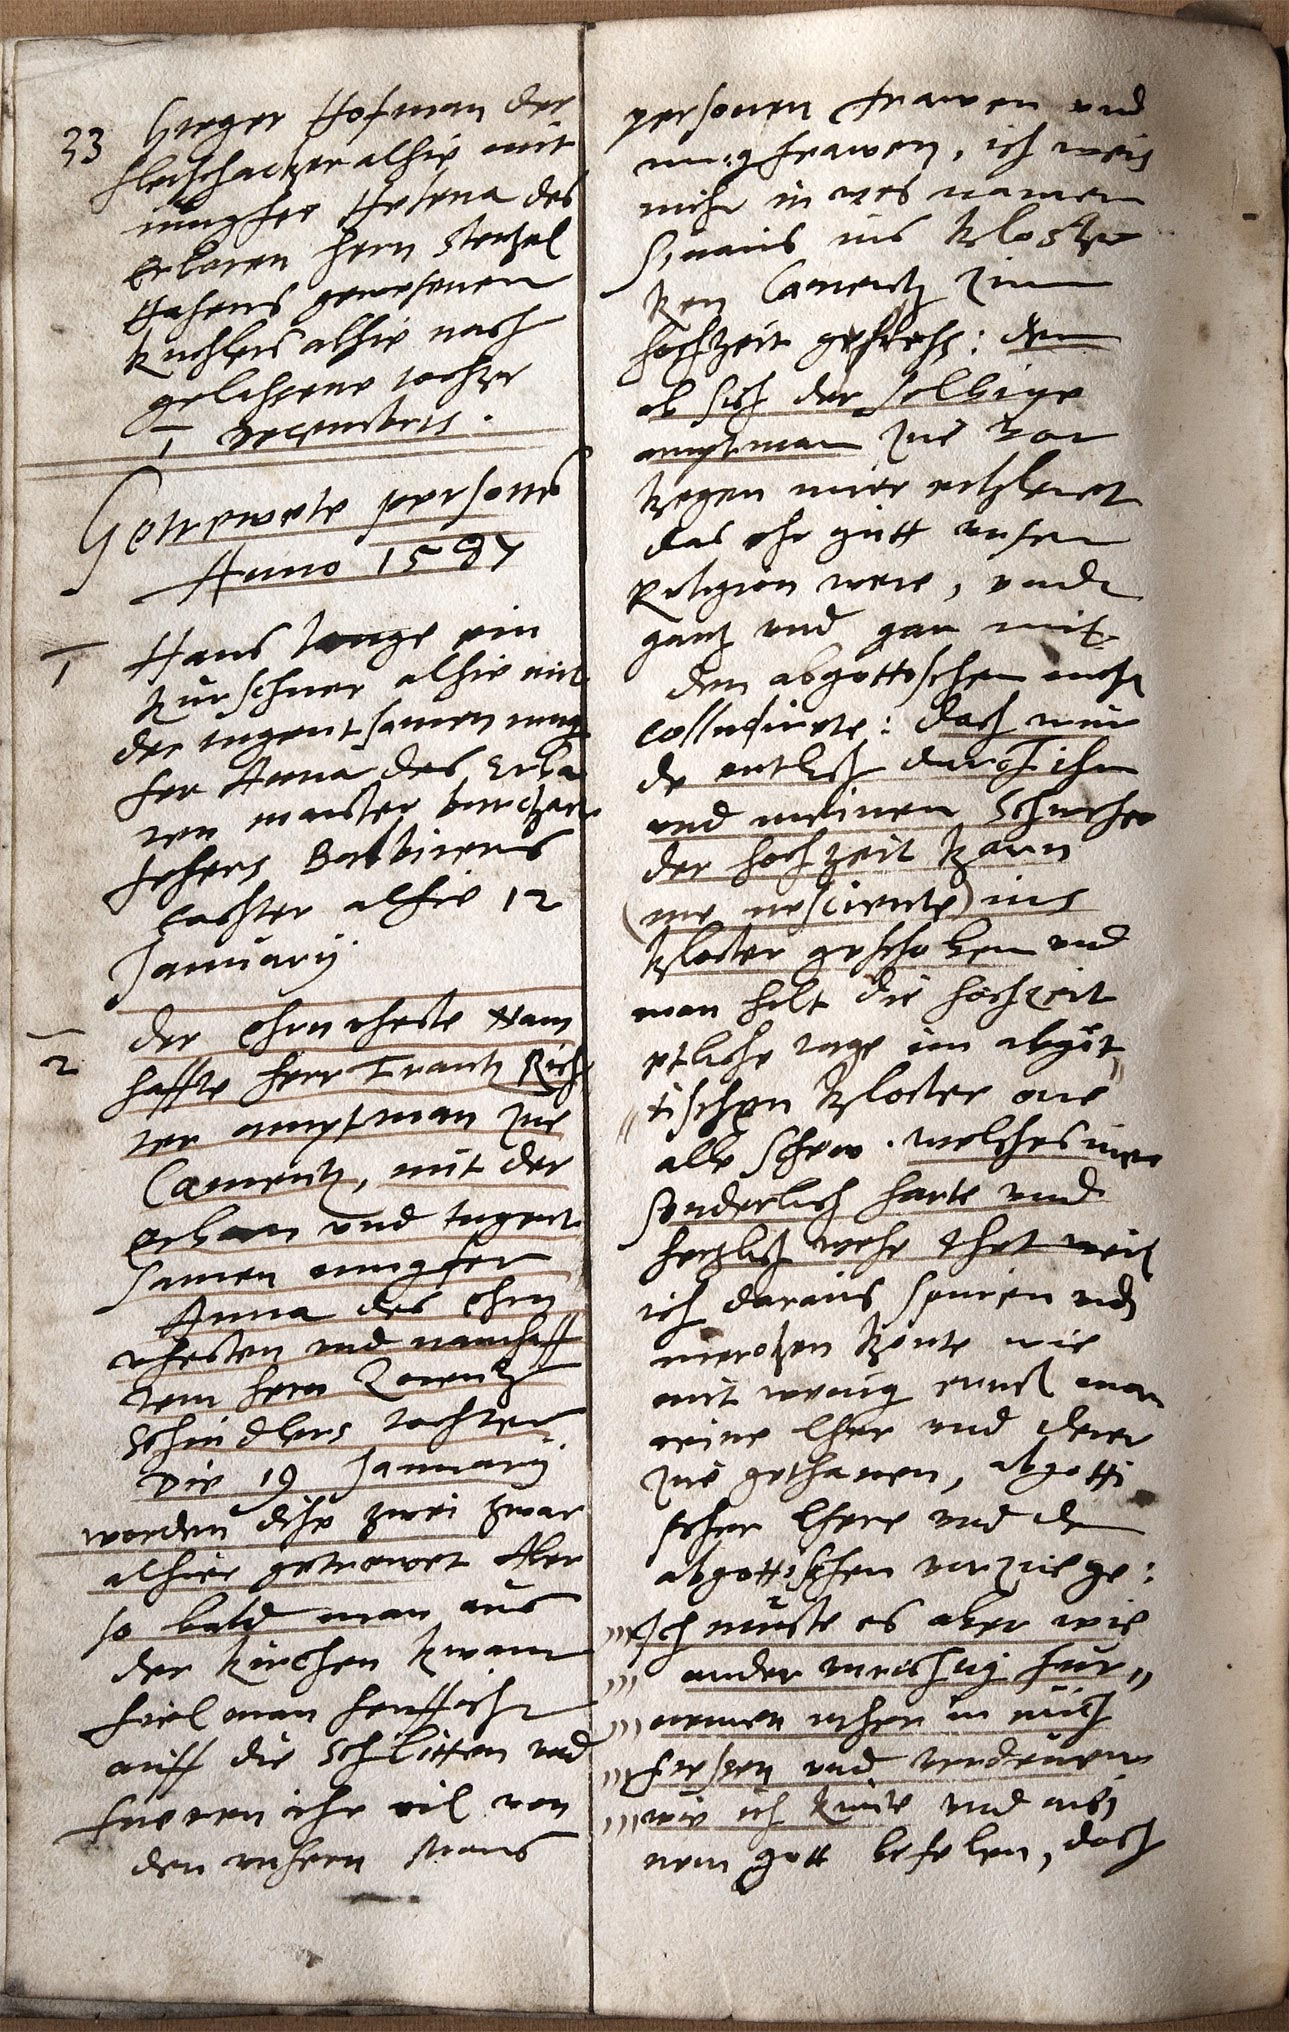 33 Gregor Hofman der
fleischacker alhie mit
iungfer Helena des
Erbaren hern Stentzel
Hahens gewesenen
alhie nach
gelassene tochter
1 Decembris.
Getrewete personen
Anno 1597
1 Hans Lange ein
kurschner alhie mit
der tugentsamen iung
fer Anna des Erba
ren meister
Balbirers
tochter alhie 12
January
2 der Ehrnveste Nam
haffte herr Frantz Rich
ter amptman zue
Camentz, mit der
Erbarn und tugent
samen iungfer
Anna des Ehrn
vhesten und namhaff
tem hern Lorentz
Schindlers tochter
Die 19 January
worden dise zwei zwar
alhier getrewet Aber
so bald man aus
der kirchen kwam
fiel man
auff die Schlitten und
fueren ihr vil von
den unsern Mans
personen frawen und
iungfrawen, ich weis
nicht in wes namen
hinaus ins kloster
ken Camentz zum
hochzeit : den
ob sich der selbige
amptman zue vor
kegen mier erkleret
das ehr gutt unser
Religion were, und
gantz und gar mit
den abgottischen nicht
colludirete: doch wur
de entlich durch ihn
und meinen Schweher
der hochzeit karn
(me nesciente) ins
kloster geschoben und
man hilt die hochzeit
etliche tage im abgöt
tischen kloster one
alle Schew. welches mier
sonderlich harte und
hertzlich wehe thet weil
ich daraus spüren und
mercken konte wie
mit wenig ernst man
reine lher und derer
zue gethanen, abgotti
scher lhere und den
abgottischen vorzuege:
Ich muste es aber wie
ander mer
nemen in mich
fressen und verdeuen
wie ich kunte und
nem gott befelen, doch